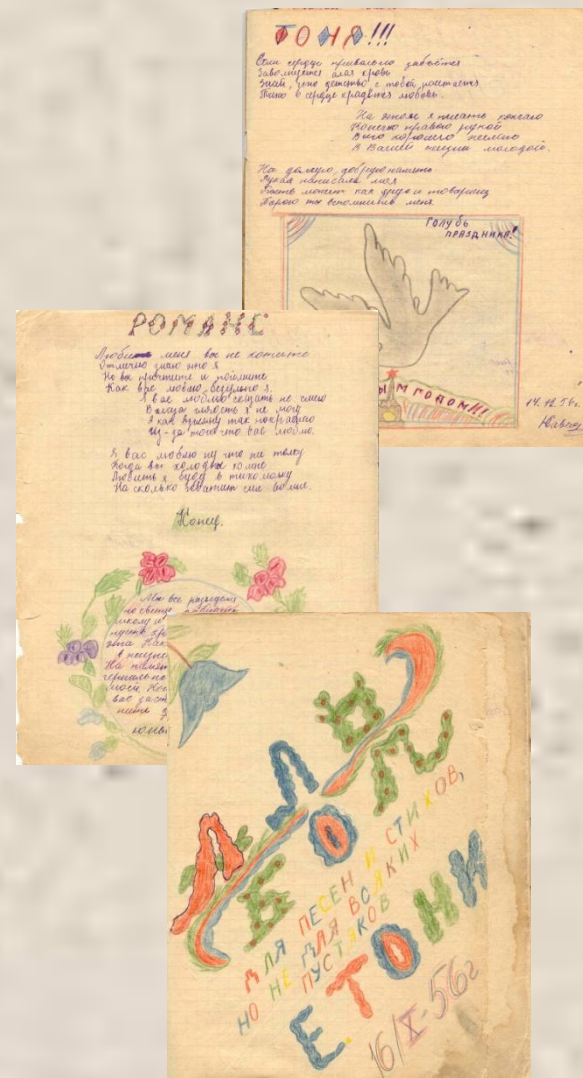 ТОНЯ!!!
Если сердце привольно забьётся
Заволнуется алая кровь
Знай, что детство с тобой растаётся
Тихо в сердце крадётся любовь.
На этом я писать кончаю
Конечно правою рукой
Всего хорошего желаю
В Вашей жизни молодой.
На долгую, добрую память
Рукая написала моя
Быть может как друга и товарищ
Порою ты вспомнишь меня.
ГОЛУБЬ
ПРАЗДНИКА!
ЫМ ГОДОМ!!!
14.12.56г.
РОМАНС
Любить меня вы не хотите
Отлично знаю это я
Но вы простите и поймите
Как вас люблю безумно я.
Я вас люблю сказать не смею
В глаза глядеть я не могу
Я как взгляну так покраснею
Из-за того что вас люблю.
Я вас люблю ну что же толку
Когда вы холодны ко мне
Любить я буду в тихомолку
На сколько хватит сил во мне.
Конец.
Мы все разъедемся
по свету
школу и
пусть
эта Как
в жизни
На память
вас
АЛЬБОМ
ДЛЯ ПЕСЕН И СТИХОВ,
НО НЕ ДЛЯ ВСЯКИХ
ПУСТЯКОВ
Е. ТОНИ
16/X-56г